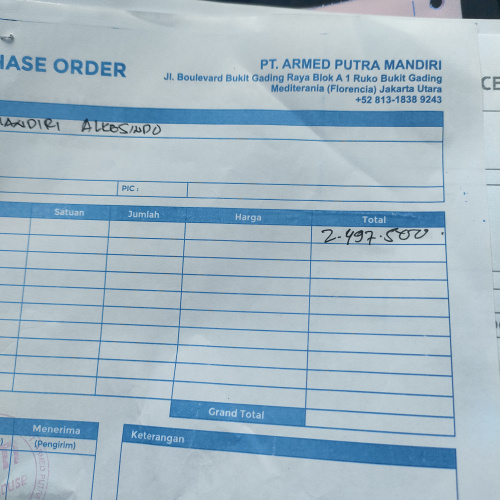 HASE ORDER
PT. ARMED PUTRA MANDIRI
Jl. Boulevard Bukit Gading Raya Blok A 1 Ruko Bukit Gading
Mediterania (Florencia) Jakarta Utara
+52 813-1838 9243
MANDIRI ALKESINDO
PIC :
Satuan Jumlah Harga Total
2.497.500
Grand Total
Menerima
(Pengirim)
Keterangan
CE